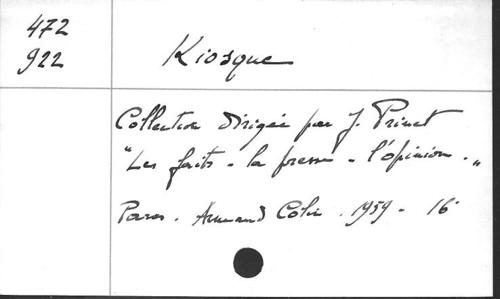 472
922
Kiosque
Collection dirigée par J. Prinet
"Les faits - la presse - l'opinion."
Paris. Armand Colin. 1959 - 16°